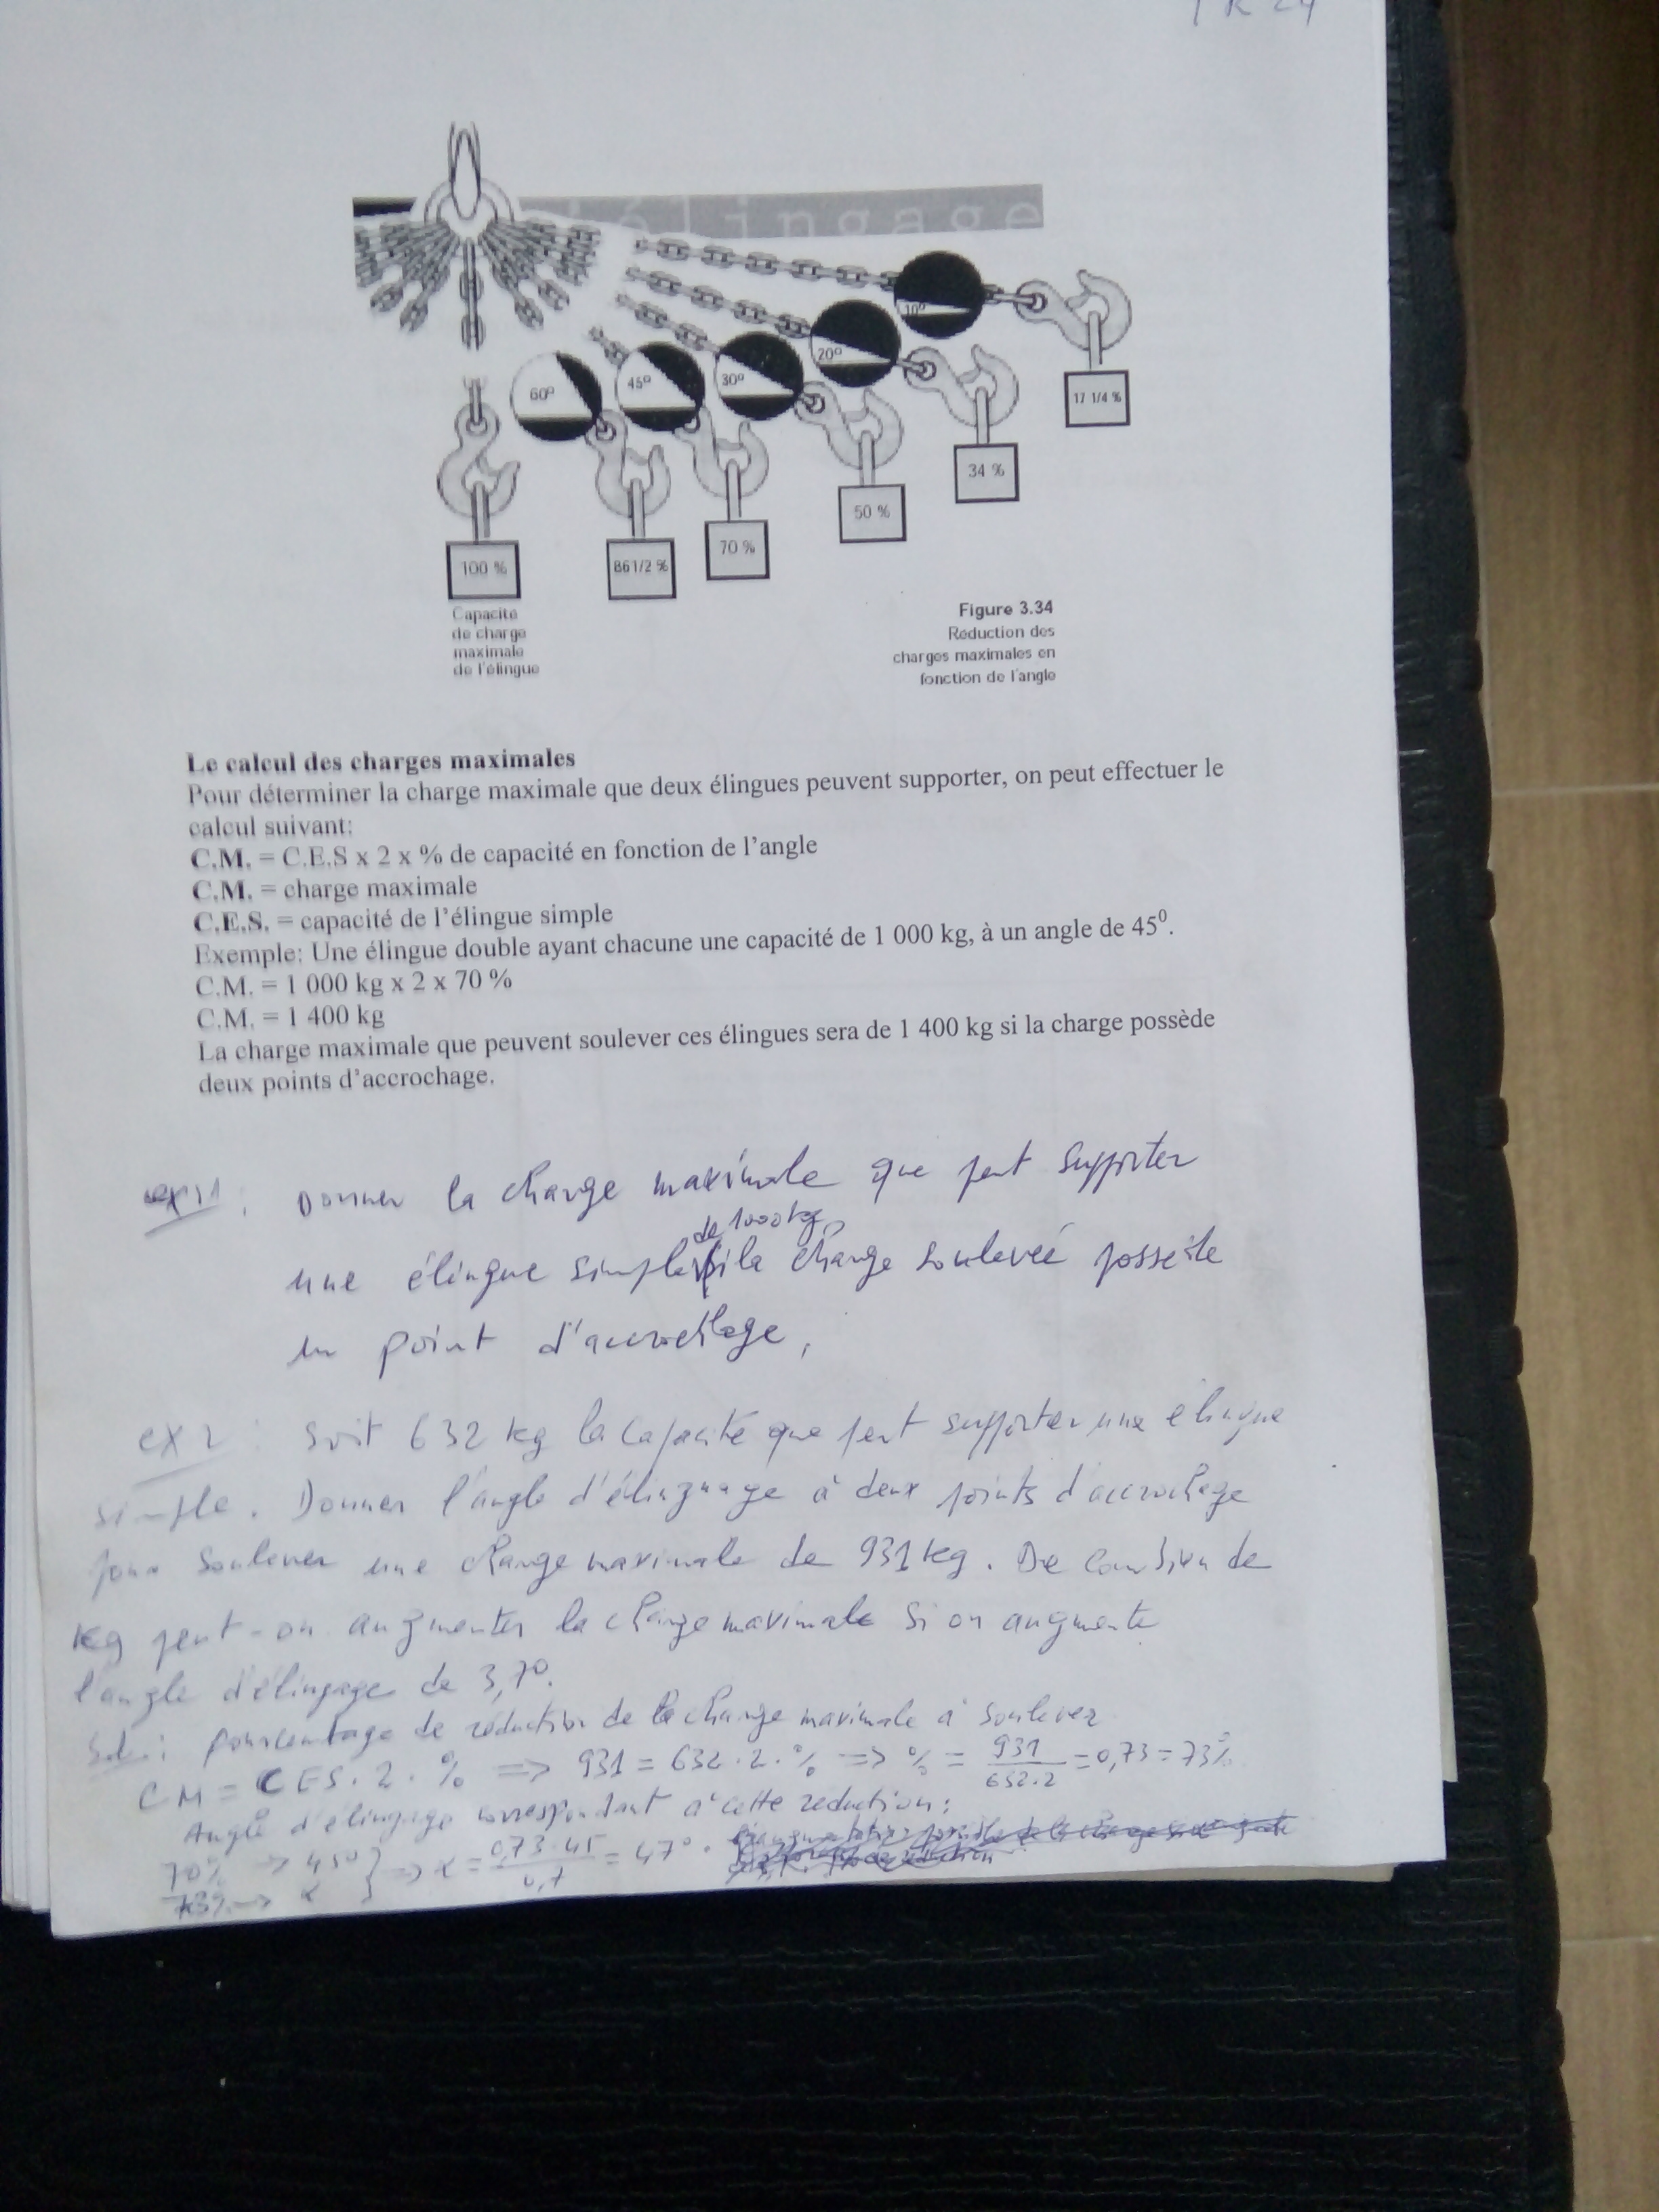 TR 24
élingage
10°
20°
30°
45°
60°
17 1/4 %
34 %
50 %
70 %
86 1/2 %
100 %
Capacité
de charge
maximale
de l'élingue
Figure 3.34
Réduction des
charges maximales en
fonction de l'angle
Le calcul des charges maximales
Pour déterminer la charge maximale que deux élingues peuvent supporter, on peut effectuer le
calcul suivant:
C.M. = C.E.S x 2 x % de capacité en fonction de l'angle
C.M. = charge maximale
C.E.S. = capacité de l'élingue simple
Exemple: Une élingue double ayant chacune une capacité de 1 000 kg, à un angle de 45⁰.
C.M. = 1 000 kg x 2 x 70 %
C.M. = 1 400 kg
La charge maximale que peuvent soulever ces élingues sera de 1 400 kg si la charge possède
deux points d'accrochage.
ex 1 : Donner la charge maximale que peut supporter
de 1000 kg
une élingue simple si la charge soulevée possède
un point d'accrochage.
ex 2 : Soit 632 kg la capacité que peut supporter une élingue
simple. Donner l'angle d'élinguage à deux points d'accrochage
pour soulever une charge maximale de 931 kg. De combien de
kg peut-on augmenter la charge maximale si on augmente
l'angle d'élingage de 3,7°.
pourcentage de réduction de la charge maximale à soulever
CM = CES . 2 . % => 931 = 632 . 2 . % => % = 931 / 632.2 = 0,73 = 73%
Angle d'élingage correspondant à cette reduction :
70% -> 45° } => α = 0,73 . 45 / 0,7 = 47° .
73% -> α